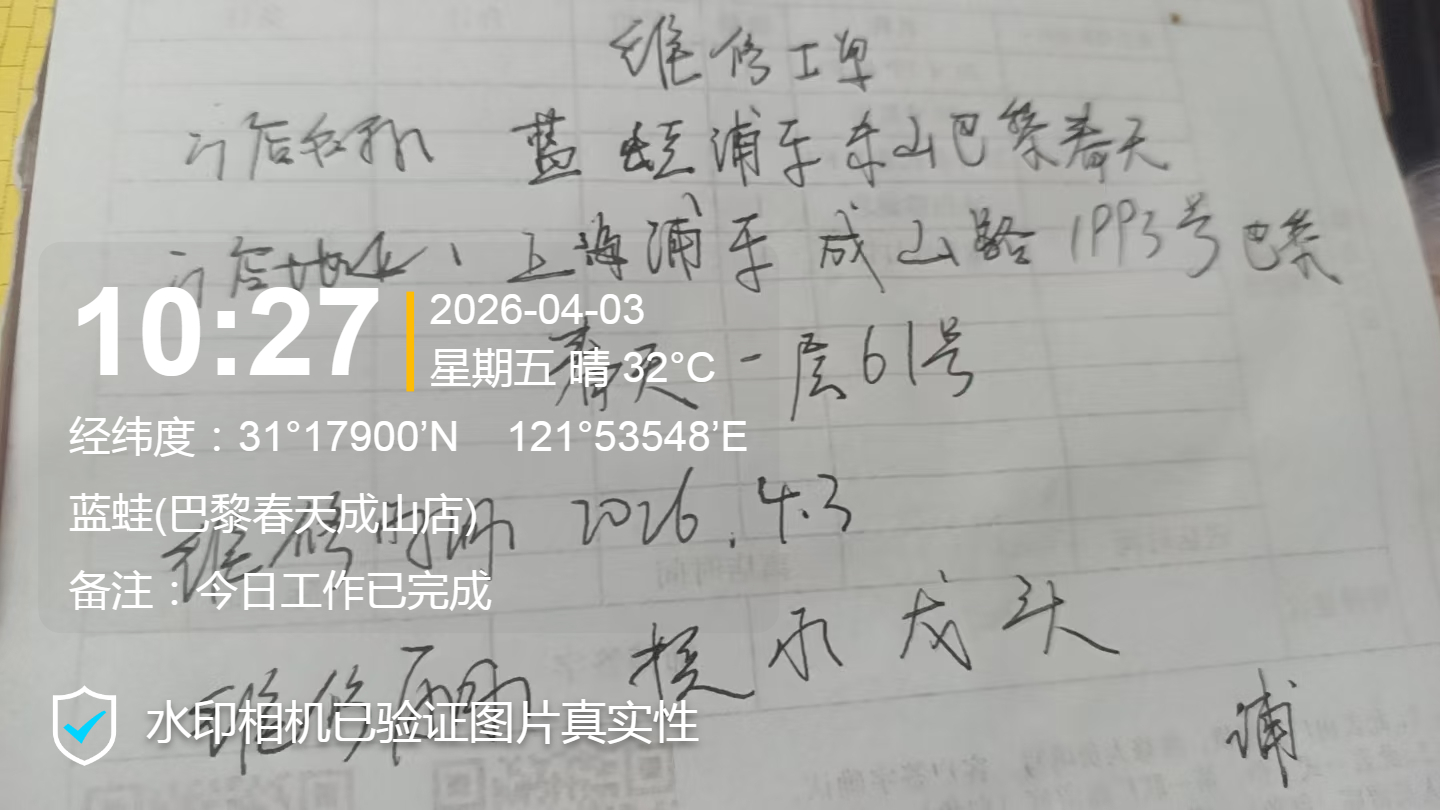 维修工单
门店名称 蓝蛙浦东成山巴黎春天
门店地址：上海浦东成山路1993号巴黎
春天一层61号
维修时间 2026.4.3
维修内容 换水龙头
浦
10:27
2026-04-03
星期五 晴 32°C
经纬度：31°17900’N 121°53548’E
蓝蛙(巴黎春天成山店)
备注：今日工作已完成
水印相机已验证图片真实性